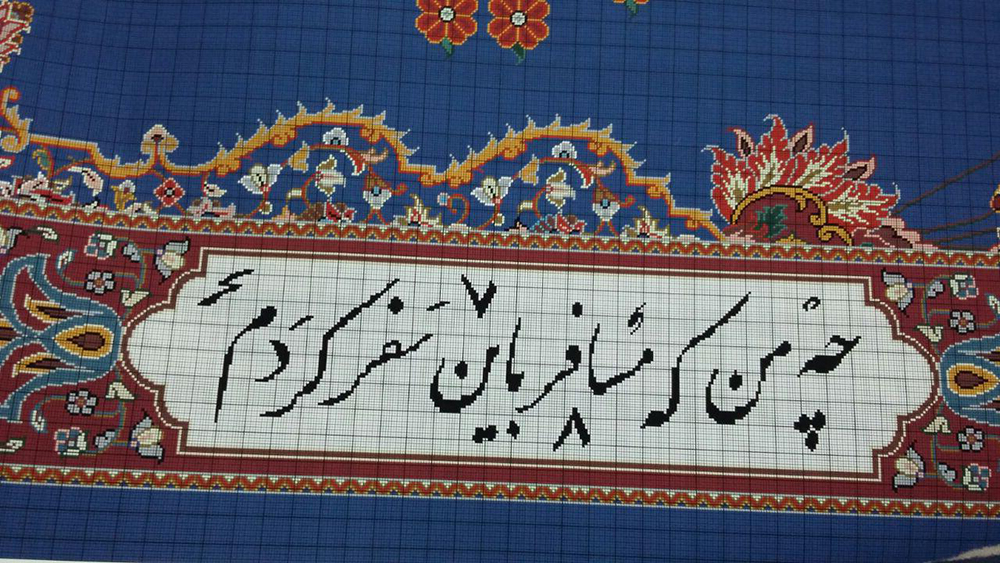 چه من که مُسافر باین سَفر کَردم